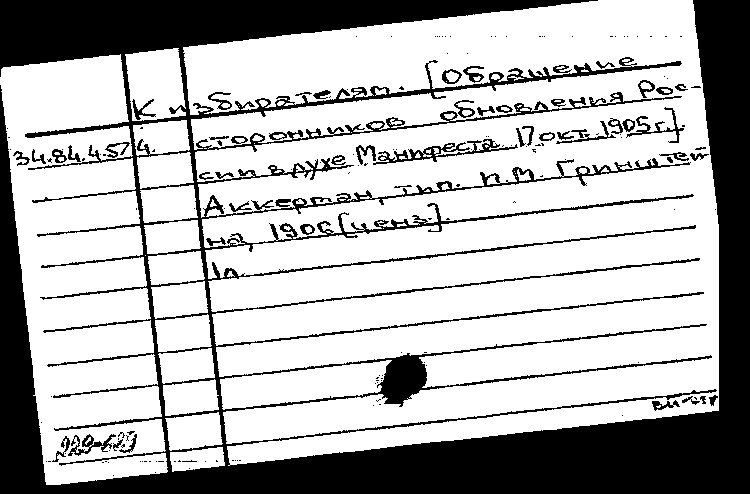 К избирателям. [Обращение
34.84.4.57 4. сторонников обновления Рос-
сии в духе Манифеста 17 окт. 1905 г.].
Аккерман, тип. П.М. Гринштей-
на, 1906 [ценз.].
1 л.
229-629